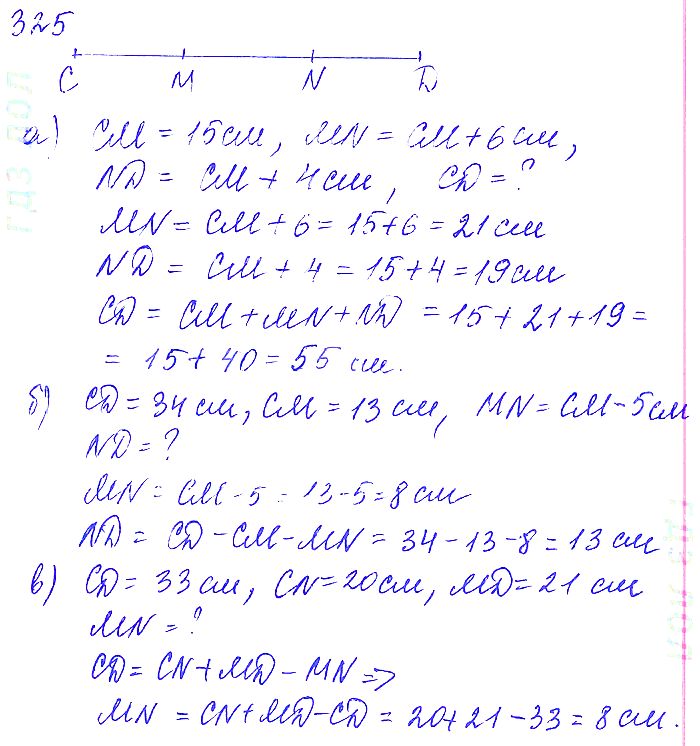 325
C M N D
а) CM = 15 см, MN = CM + 6 см,
ND = CM + 4 см, CD = ?
MN = CM + 6 = 15 + 6 = 21 см
ND = CM + 4 = 15 + 4 = 19 см
CD = CM + MN + ND = 15 + 21 + 19 =
= 15 + 40 = 55 см.
б) CD = 34 см, CM = 13 см, MN = CM - 5 см
ND = ?
MN = CM - 5 = 13 - 5 = 8 см
ND = CD - CM - MN = 34 - 13 - 8 = 13 см
в) CD = 33 см, CN = 20 см, MD = 21 см
MN = ?
CD = CN + MD - MN =>
MN = CN + MD - CD = 20 + 21 - 33 = 8 см.